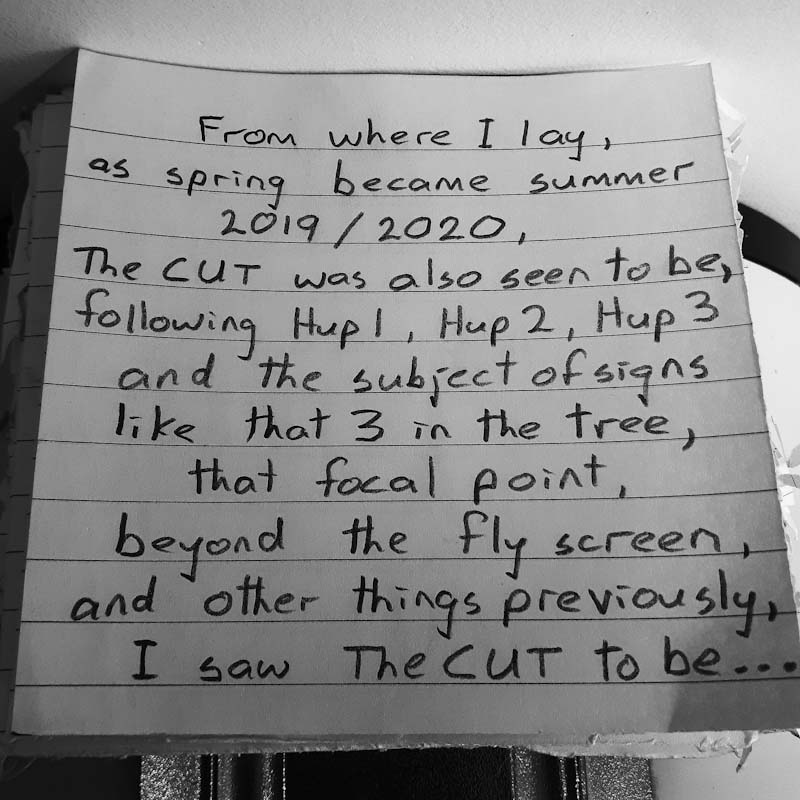 From where I lay,
as spring became summer
2019/2020,
The CUT was also seen to be,
following Hup 1, Hup 2, Hup 3
and the subject of signs
like that 3 in the tree,
that focal point,
beyond the fly screen,
and other things previously,
I saw The CUT to be...